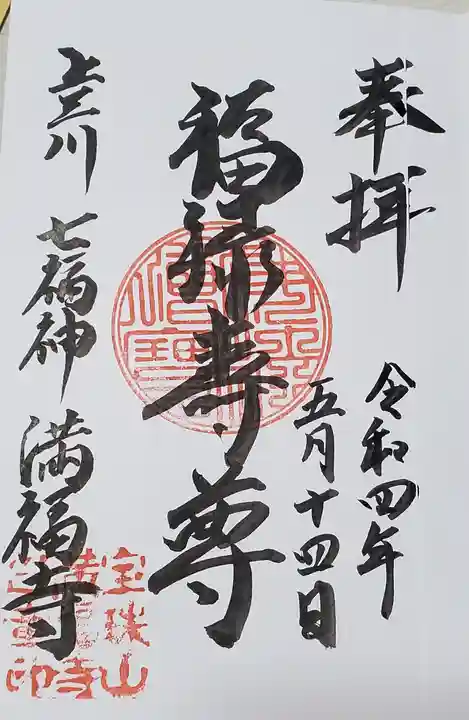 奉拝
令和四年
五月十四日
福禄寿尊
上三川
七福神
満福寺
宝珠山